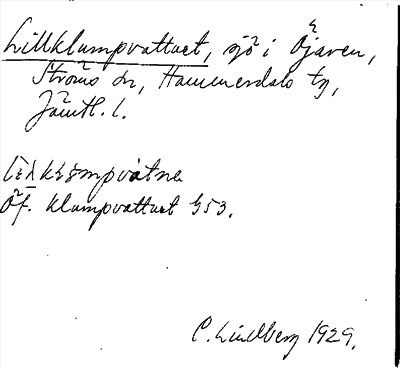 Lillklumpvattnet, sjö i Öjaren,
Ströms sn, Hammerdals tg,
Jämtl. l.
Öf. Klumpvattnet G53.
C. Lindberg 1929.